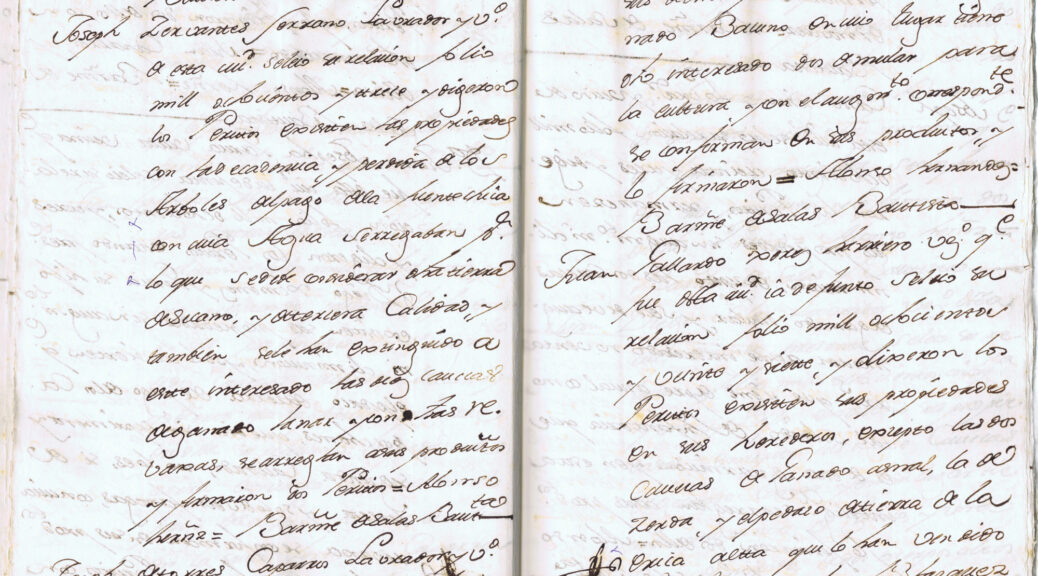 Joseph Zervantes Serrano Labrador y v.º
a esta iu.d seleio su relaion folio
mill ochocientos y trece y digeron
los Peritos existen las propiedades
con la decadenia y perdida a los
Arboles al pago dela fuentechica
con cuia Agua serregaban p.r
lo que se deve considerar esta tierra
asecano, y atercera Calidad, y
tambien sele han extinguido a
este interesado las diez caueza
a ganado lanar y con estas re-
vaxas, se arreglan asus productos
y firmaron dos Peritos = Alonso
herñz = Barñe asalas Bautta
Joseph atorres Caparros Labrador y v.º
nado Bacuno en cuio lugar tiene
dho interesado dos amular para
la cultura y con el augm.to correspond.te
se conforman en sus productos y
lo firmaron = Alonso hernandez =
Barñe asalas Bautista
Juan Gallardo Perez harriero v.º q.e
fue desta iu.d ia defunto seleio su
relaion folio mill ochocientos
y veinte y siette, y dixeron los
Peritos existen sus propiedades
en sus herederos, excepto las dos
Cauezas a Ganado asnal, la de
Zerda y el pedazo atierra de la
erica alta que lo han vendido